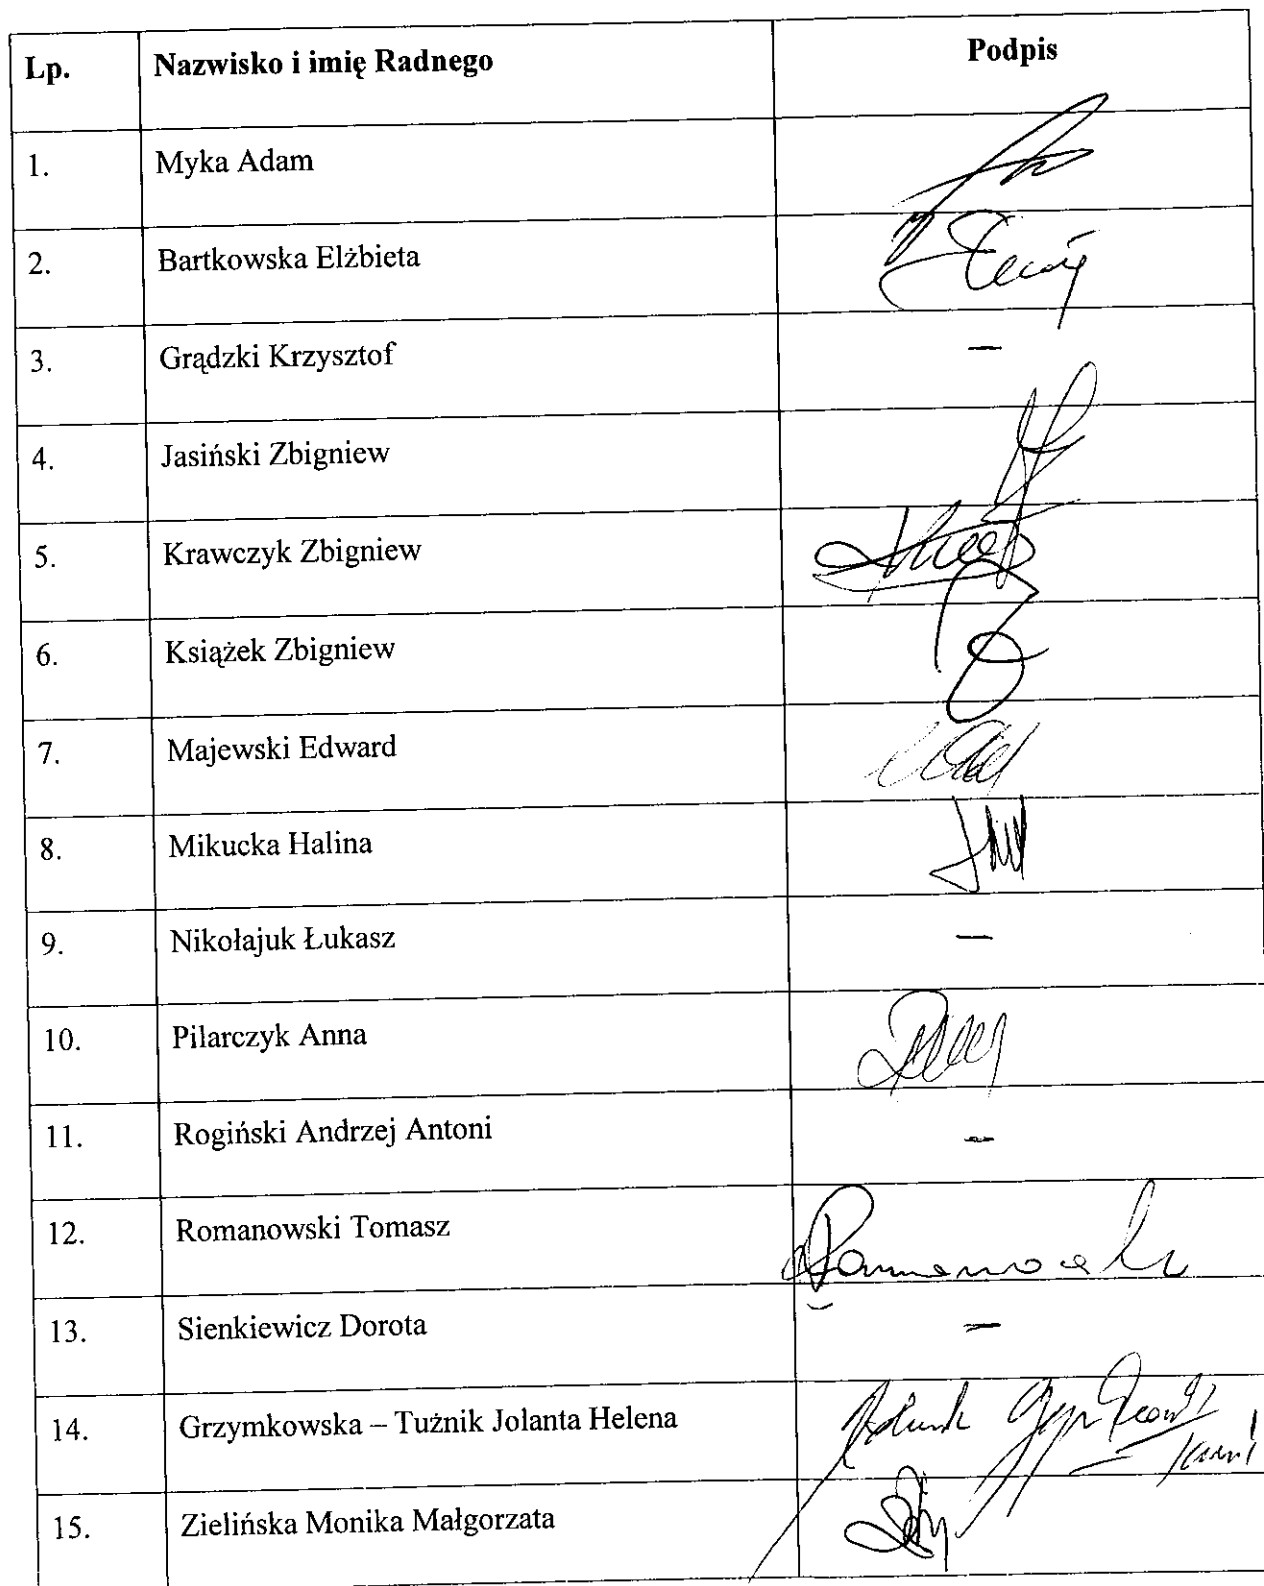 Lp. Nazwisko i imię Radnego Podpis
1. Myka Adam
2. Bartkowska Elżbieta
3. Grądzki Krzysztof —
4. Jasiński Zbigniew
5. Krawczyk Zbigniew
6. Książek Zbigniew
7. Majewski Edward
8. Mikucka Halina
9. Nikołajuk Łukasz —
10. Pilarczyk Anna
11. Rogiński Andrzej Antoni —
12. Romanowski Tomasz
13. Sienkiewicz Dorota —
14. Grzymkowska – Tużnik Jolanta Helena
15. Zielińska Monika Małgorzata